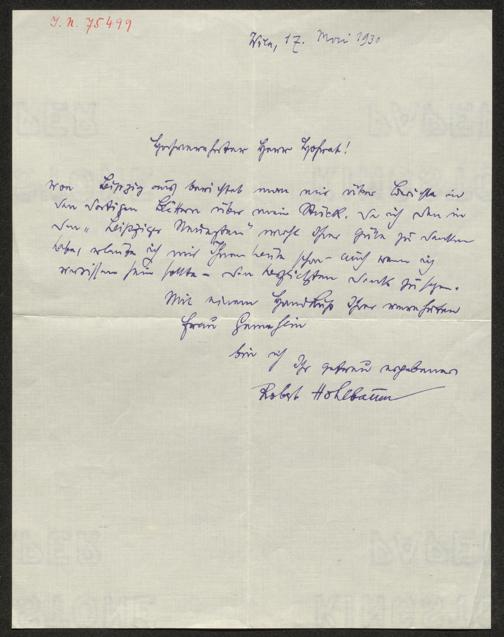 I. N. 75499
Wien, 17. Mai 1930
Hochverehrter Herr Hofrat!
von Leipzig aus berichtet man mir über Berichte in
den dortigen Blättern über mein Stück. Da ich den in
den „Leipziger Neuesten“ wohl Ihrer Güte zu danken
habe, erlaube ich mir Ihnen heute schon – auch wenn ich
sein sollte – den herzlichsten Dank zu sagen.
Mit einem Handkuß Ihrer verehrten
Frau Gemahlin
bin ich
Ihr getreu ergebener
Robert Hohlbaum